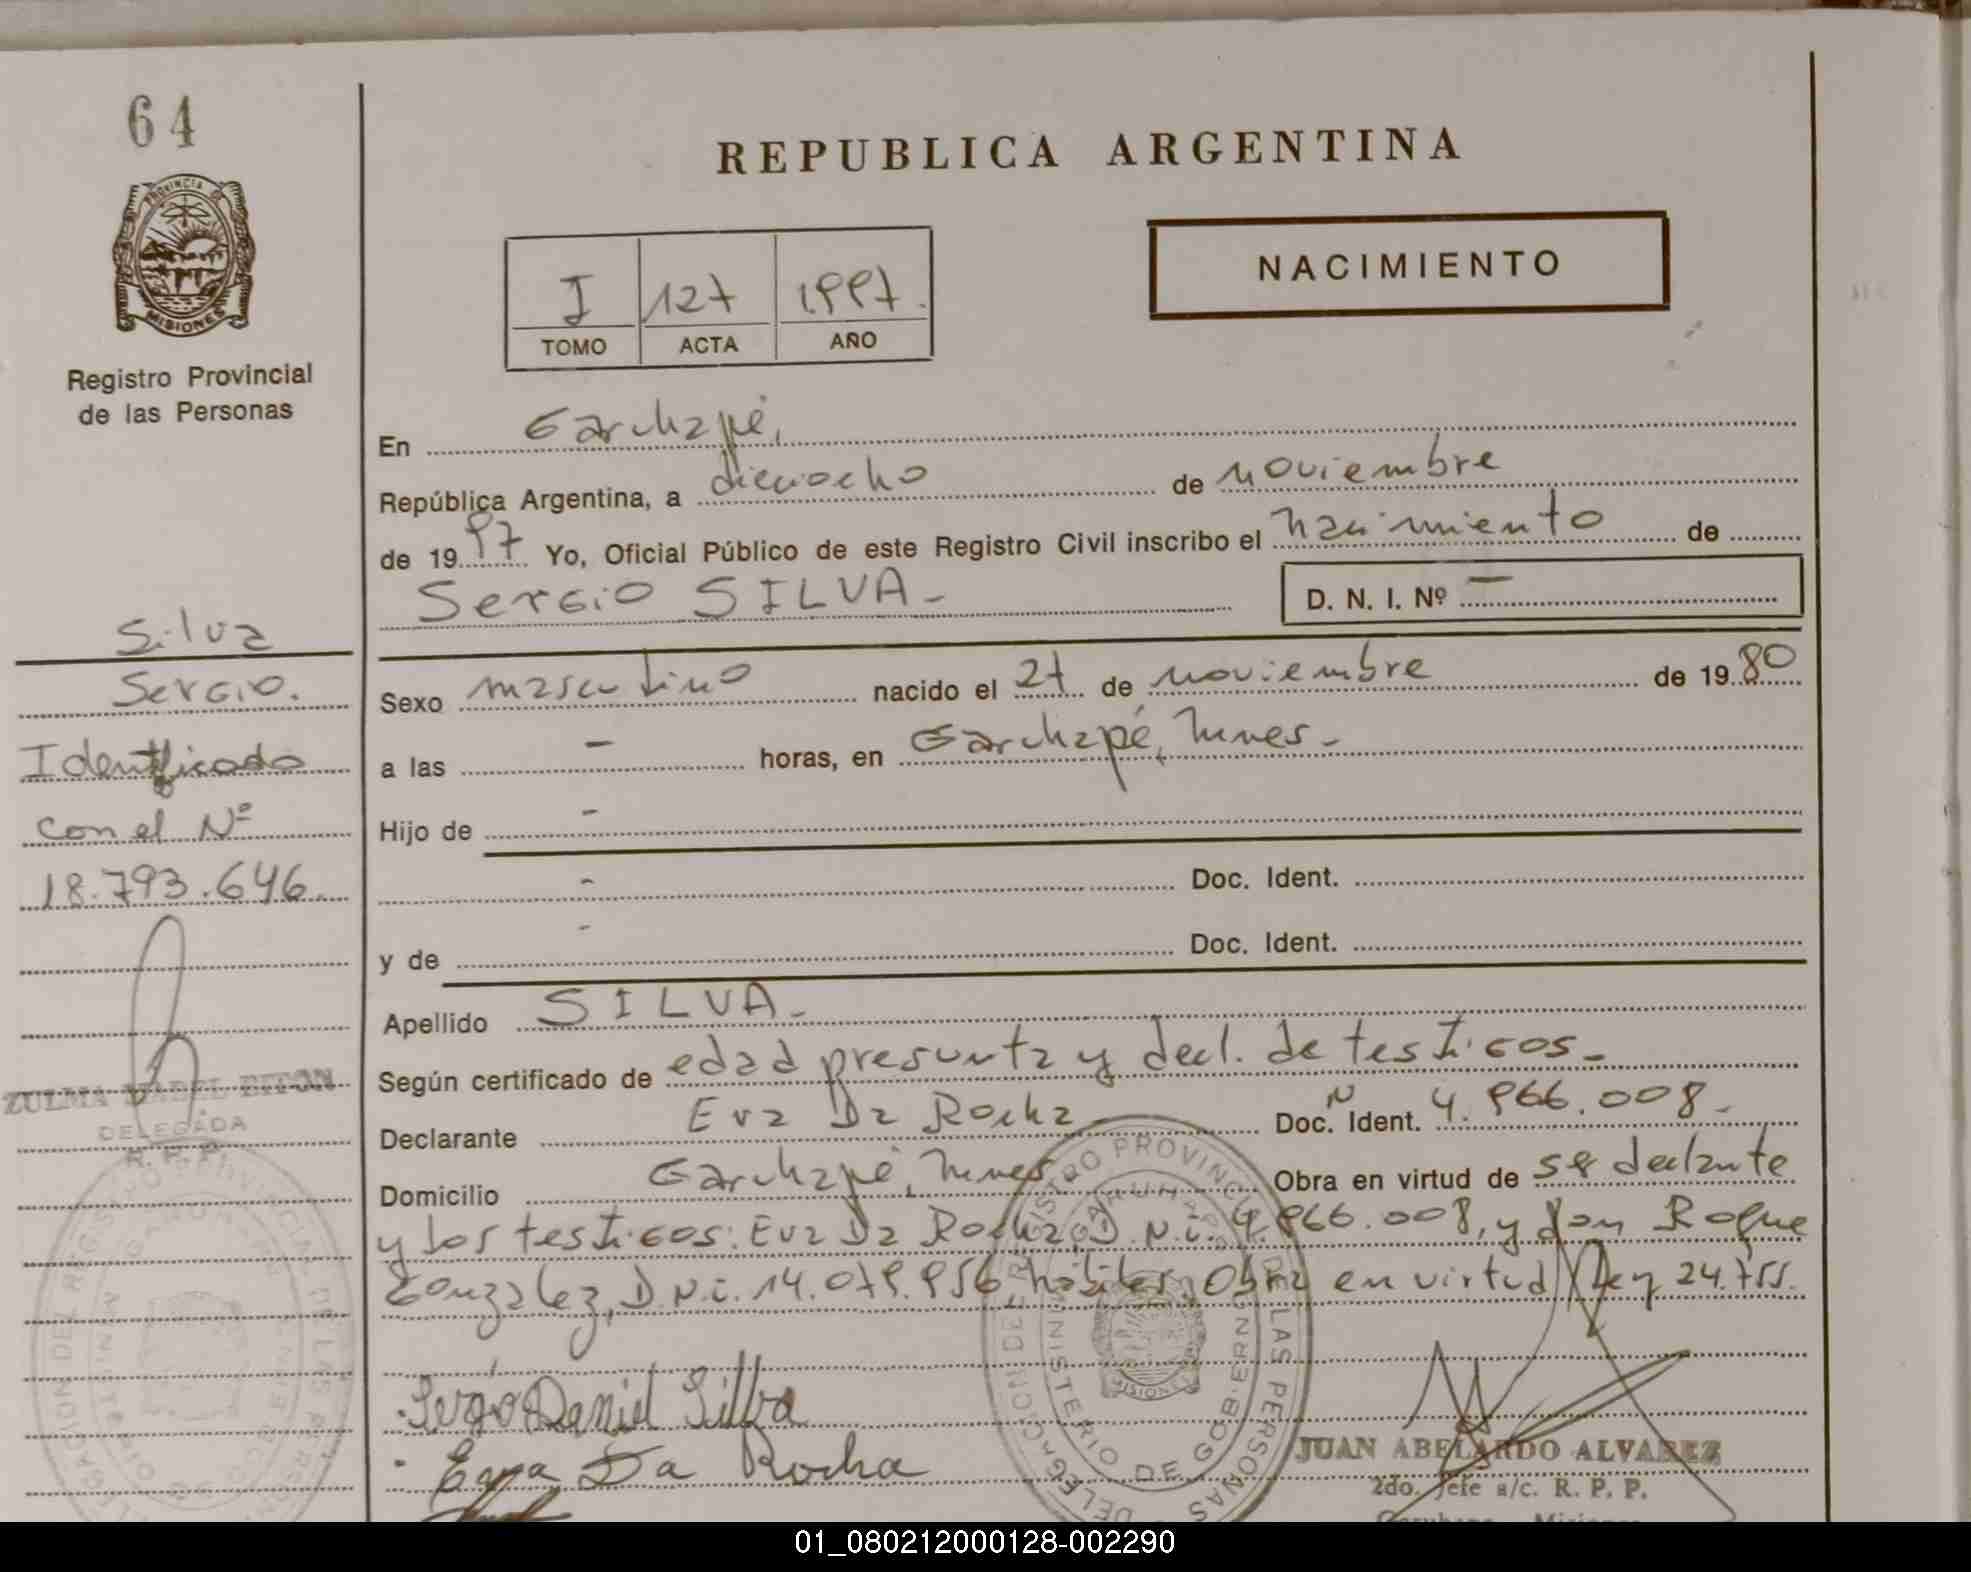 64
PROVINCIA DE
MISIONES
Registro Provincial
de las Personas
Silva
Sergio.
Identificado
con el Nº
18.793.646.
ZULMA MABEL BITON
DELEGADA
R. P. P.
REPUBLICA ARGENTINA
NACIMIENTO
I 127 1.997.
TOMO ACTA AÑO
En Garuhapé,
República Argentina, a dieciocho de noviembre
de 19 97 Yo, Oficial Público de este Registro Civil inscribo el nacimiento de
Sergio SILVA - D. N. I. Nº -
Sexo masculino nacido el 27 de noviembre de 19 80
a las - horas, en Garuhapé, Mnes -
Hijo de -
- Doc. Ident.
y de - Doc. Ident.
Apellido SILVA -
Según certificado de edad presunta y decl. de testigos -
Declarante Eva Da Rocha Doc. Ident. 4.966.008 -
Domicilio Garuhapé, Mnes Obra en virtud de ser declante
y los testigos: Eva Da Rocha, D.N.i. 4.966.008, y don Roque
Gonzalez, D.N.i. 14.079.956, hábiles. Obra en virtud Ley 24.755.
Sergio Daniel Silba
Eva Da Rocha
REGISTRO PROVINCIAL DE LAS PERSONAS
MINISTERIO DE GOBIERNO
MISIONES
JUAN ABELARDO ALVAREZ
2do. Jefe a/c. R. P. P.
01_080212000128-002290